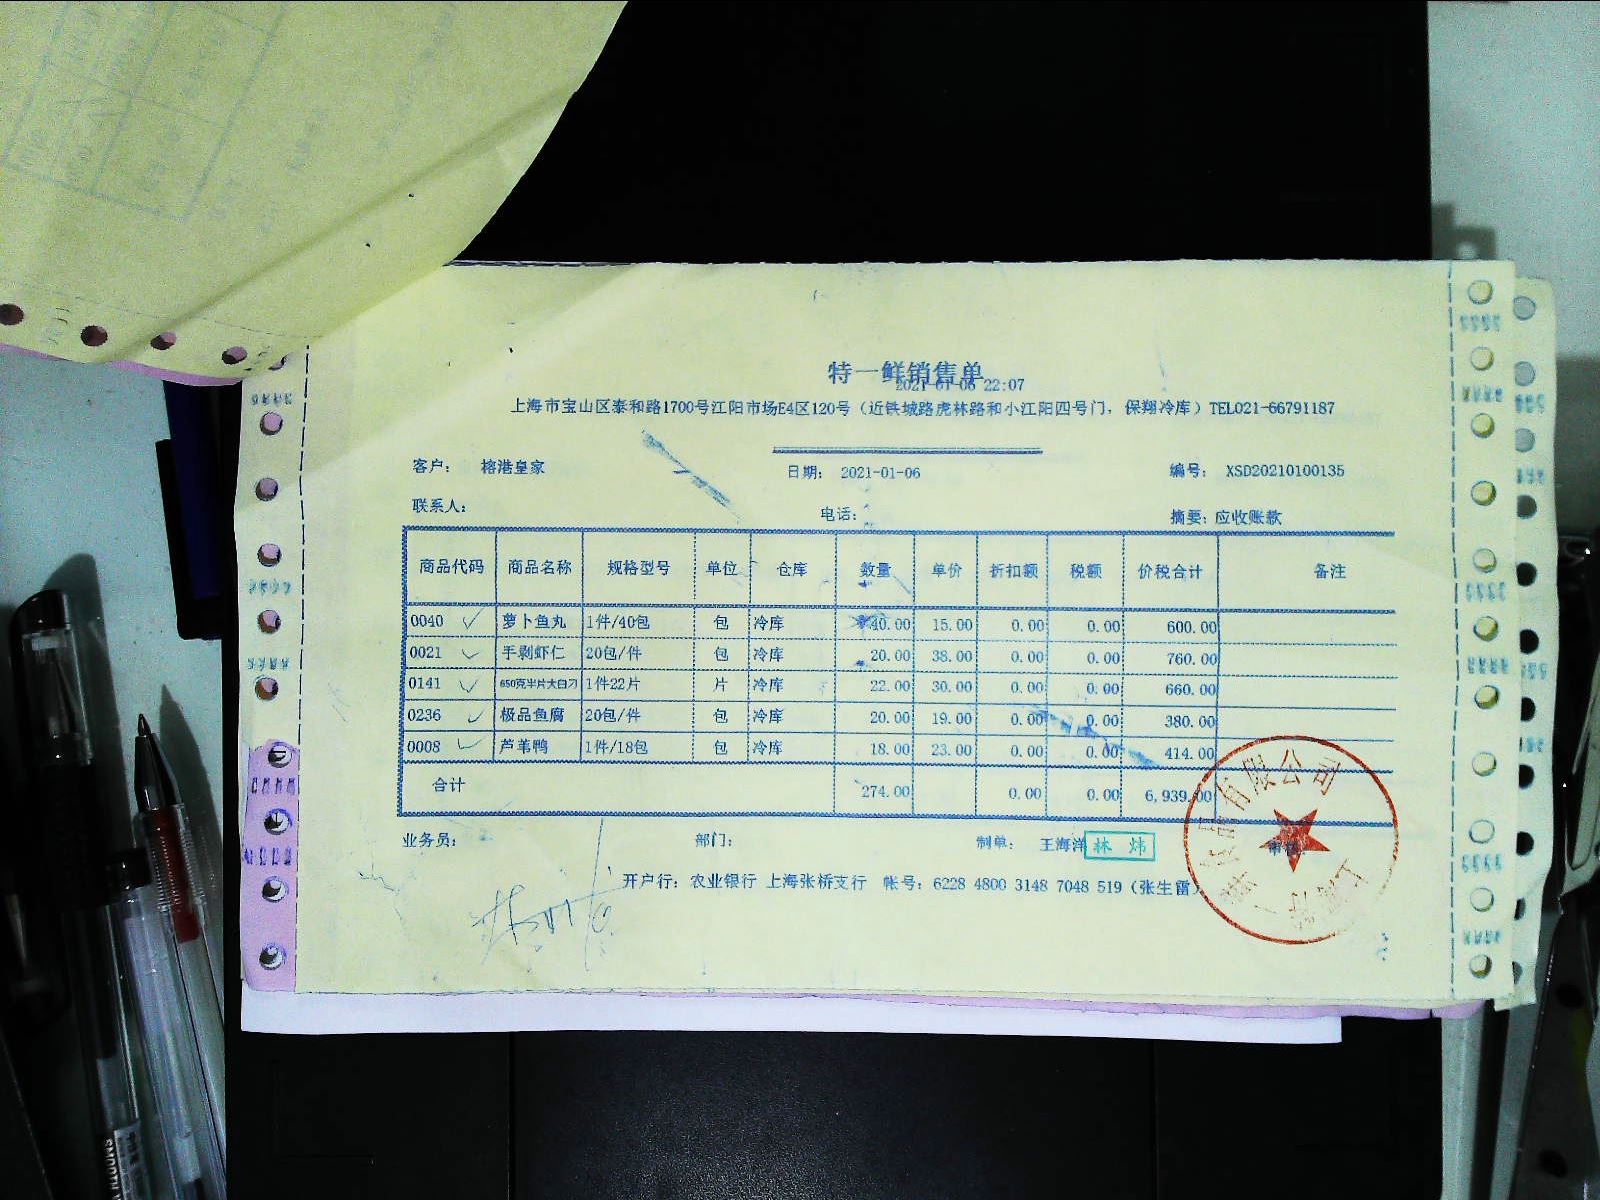 特一鲜销售单
2021-01-06 22:07
上海市宝山区泰和路1700号江阳市场E4区120号（近铁城路虎林路和小江阳四号门，保翔冷库）TEL021-66791187
客户： 榕港皇家 日期： 2021-01-06 编号： XSD20210100135
联系人： 电话： 摘要：应收账款
商品代码 商品名称 规格型号 单位 仓库 数量 单价 折扣额 税额 价税合计 备注
0040 萝卜鱼丸 1件/40包 包 冷库 40.00 15.00 0.00 0.00 600.00
0021 手剥虾仁 20包/件 包 冷库 20.00 38.00 0.00 0.00 760.00
0141 650克半片大白刁 1件22片 片 冷库 22.00 30.00 0.00 0.00 660.00
0236 极品鱼腐 20包/件 包 冷库 20.00 19.00 0.00 0.00 380.00
0008 芦苇鸭 1件/18包 包 冷库 18.00 23.00 0.00 0.00 414.00
合计 274.00 0.00 0.00 6,939.00
业务员： 部门： 制单： 王海洋 林炜
开户行：农业银行 上海张桥支行 帐号：6228 4800 3148 7048 519（张生雷）
有限公司